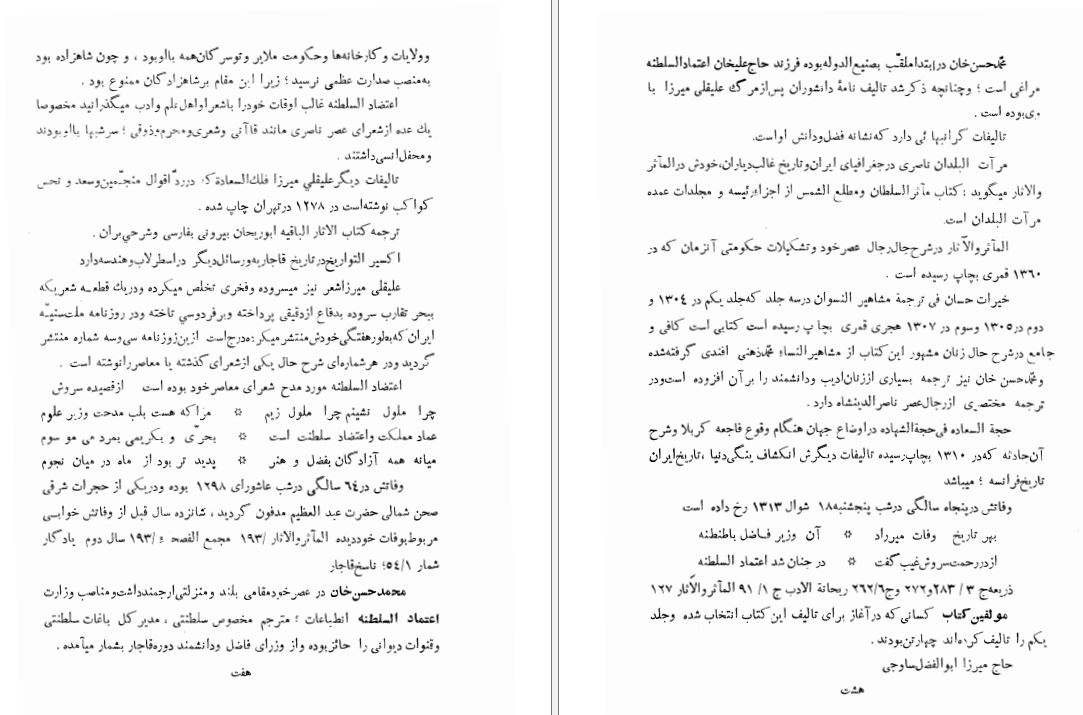 وولایات و کارخانه‌ها وحکومت ملایر و توسرکان‌همه بااوبود ، و چون شاهزاده بود
به‌منصب صدارت عظمی نرسید ؛ زیرا این مقام برشاهزادگان ممنوع بود .
اعتضاد السلطنه غالب اوقات خودرا باشعرا و اهل علم وادب میگذرانید مخصوصا
یك عده ازشعرای عصر ناصری مانند قاآنی وشعری‌ومحرم‌وذوقی ؛ سرشبها بااوبودند
و محفل‌انسی‌داشتند .
تالیفات دیگرعلیقلی میرزا فلك‌السعادة‌که درردّ اقوال منجّمین‌وسعد و نحس
کواکب نوشته‌است در ۱۲۷۸ درتهران چاپ شده .
ترجمه کتاب الاثار الباقیه ابوریحان بیرونی بفارسی وشرحی‌بران .
اکسیر التواریخ‌درتاریخ قاجاریه‌ورسائل‌دیگر دراسطرلاب‌وهندسه‌دارد
علیقلی میرزاشعر نیز میسروده وفخری تخلص میکرده ودریك قطعـه شعریکه
ببحر تقارب سروده بدفاع ازدقیقی پرداخته وبرفردوسی تاخته ودر روزنامه ملت‌سنیّه
ایران که‌بطورهفتگی‌خودش‌منتشرمیکرده‌درج‌است ازین‌روزنامه سی‌وسه شماره منتشر
گردید ودر هرشماره‌ای شرح حال یکی ازشعرای گذشته یا معاصررانوشته است .
اعتضاد السلطنه مورد مدح شعرای معاصرخود بوده است ازقصیده سروش
چرا ملول نشینم چرا ملول زیم ☼ مراکه هست بلب مدحت وزیر علوم
عماد مملکت واعتضاد سلطنت است ☼ بحرّی و بکریمی بمرد می مو سوم
میانه همه آزادگان بفضل و هنر ☼ پدید تر بود از ماه در میان نجوم
وفاتش در۶۴ سالگی درشب عاشورای ۱۲۹۸ بوده ودریکی از حجرات شرقی
صحن شمالی حضرت عبد العظیم مدفون گردید ، شانزده سال قبل از وفاتش خوابـی
مربوط‌بوفات خوددیده المآثروالاثار /۱۹۳ مجمع الفصحاء /۱۹۳ سال دوم یادگار
شمار ۵۴/۱؛ ناسخ‌قاجار
محمدحسن‌خان در عصرخودمقامی بلند ومنزلتی‌ارجمندداشت‌ومناصب وزارت
اعتماد السلطنه انطباعات ؛ مترجم مخصوص سلطنتی ، مدیرکل باغات سلطنتی
وقنوات دیوانی را حائزبوده واز وزرای فاضل ودانشمند دوره‌قاجار بشمار میآمده .
هفت
محمدحسن‌خان درابتداملقّب بصنیع‌الدوله‌بوده فرزند حاج‌علیخان اعتمادالسلطنه
مراغی است ؛ وچنانچه ذکرشد تالیف نامهٔ دانشوران پس‌ازمرگ علیقلی میرزا با
وی‌بوده است .
تالیفات گرانبهائی دارد که‌نشانه فضل‌ودانش اواست.
مرآت البلدان ناصری درجغرافیای ایران‌وتاریخ غالب‌دیاران،خودش درالمآثر
والاثار میگوید :کتاب مآثرالسلطان ومطلع الشمس از اجزاءرئیسه و مجلدات عمده
مرآت البلدان است.
المآثروالآثار درشرح‌حال‌رجال عصرخود وتشکیلات حکومتی آنزمان که در
۱۳۶۰ قمری بچاپ رسیده است .
خیرات حسان فی ترجمهٔ مشاهیر النسوان درسه جلد که‌جلد یکم در ۱۳۰۴ و
دوم در۱۳۰۵ وسوم در ۱۳۰۷ هجری قمری بچاپ رسیده است کتابی است کافی و
جامع درشرح حال زنان مشهور این‌کتاب از مشاهیرالنساء محمدذهنی افندی گرفته‌شده
ومحمدحسن خان نیز ترجمه بسیاری اززنان‌ادیب ودانشمند را برآن افزوده است‌ودر
ترجمه مختصری ازرجال‌عصر ناصرالدینشاه دارد .
حجة السعاده فی‌حجةالشهاده دراوضاع جهان هنگام وقوع فاجعه کربلا وشرح
آن‌حادثه که‌در ۱۳۱۰ بچاپ‌رسیده تالیفات دیگرش انکشاف ینگی‌دنیا ،تاریخ‌ایران
تاریخ‌فرانسه ؛ میباشد
وفاتش درپنجاه سالگی درشب پنجشنبه۱۸ شوال ۱۳۱۳ رخ داده است
بهر تاریخ وفات میرراد ☼ آن وزیر فـاضل باطنطنه
ازدررحمت‌سروش‌غیب‌گفت ☼ در جنان شد اعتماد السلطنه
ذریعه‌ج ۳ /۲۸۳و۲۷۲ وج۲۶۲/۶ ریحانة الادب ج ۱/ ۹۱ المآثروالآثار ۱۲۷
مولفین‌کتاب کسانی که درآغاز برای تالیف این کتاب انتخاب شده وجلد
یکم را تالیف کرده‌اند چهارتن‌بودند .
حاج میرزا ابوالفضل‌ساوجی
هشت